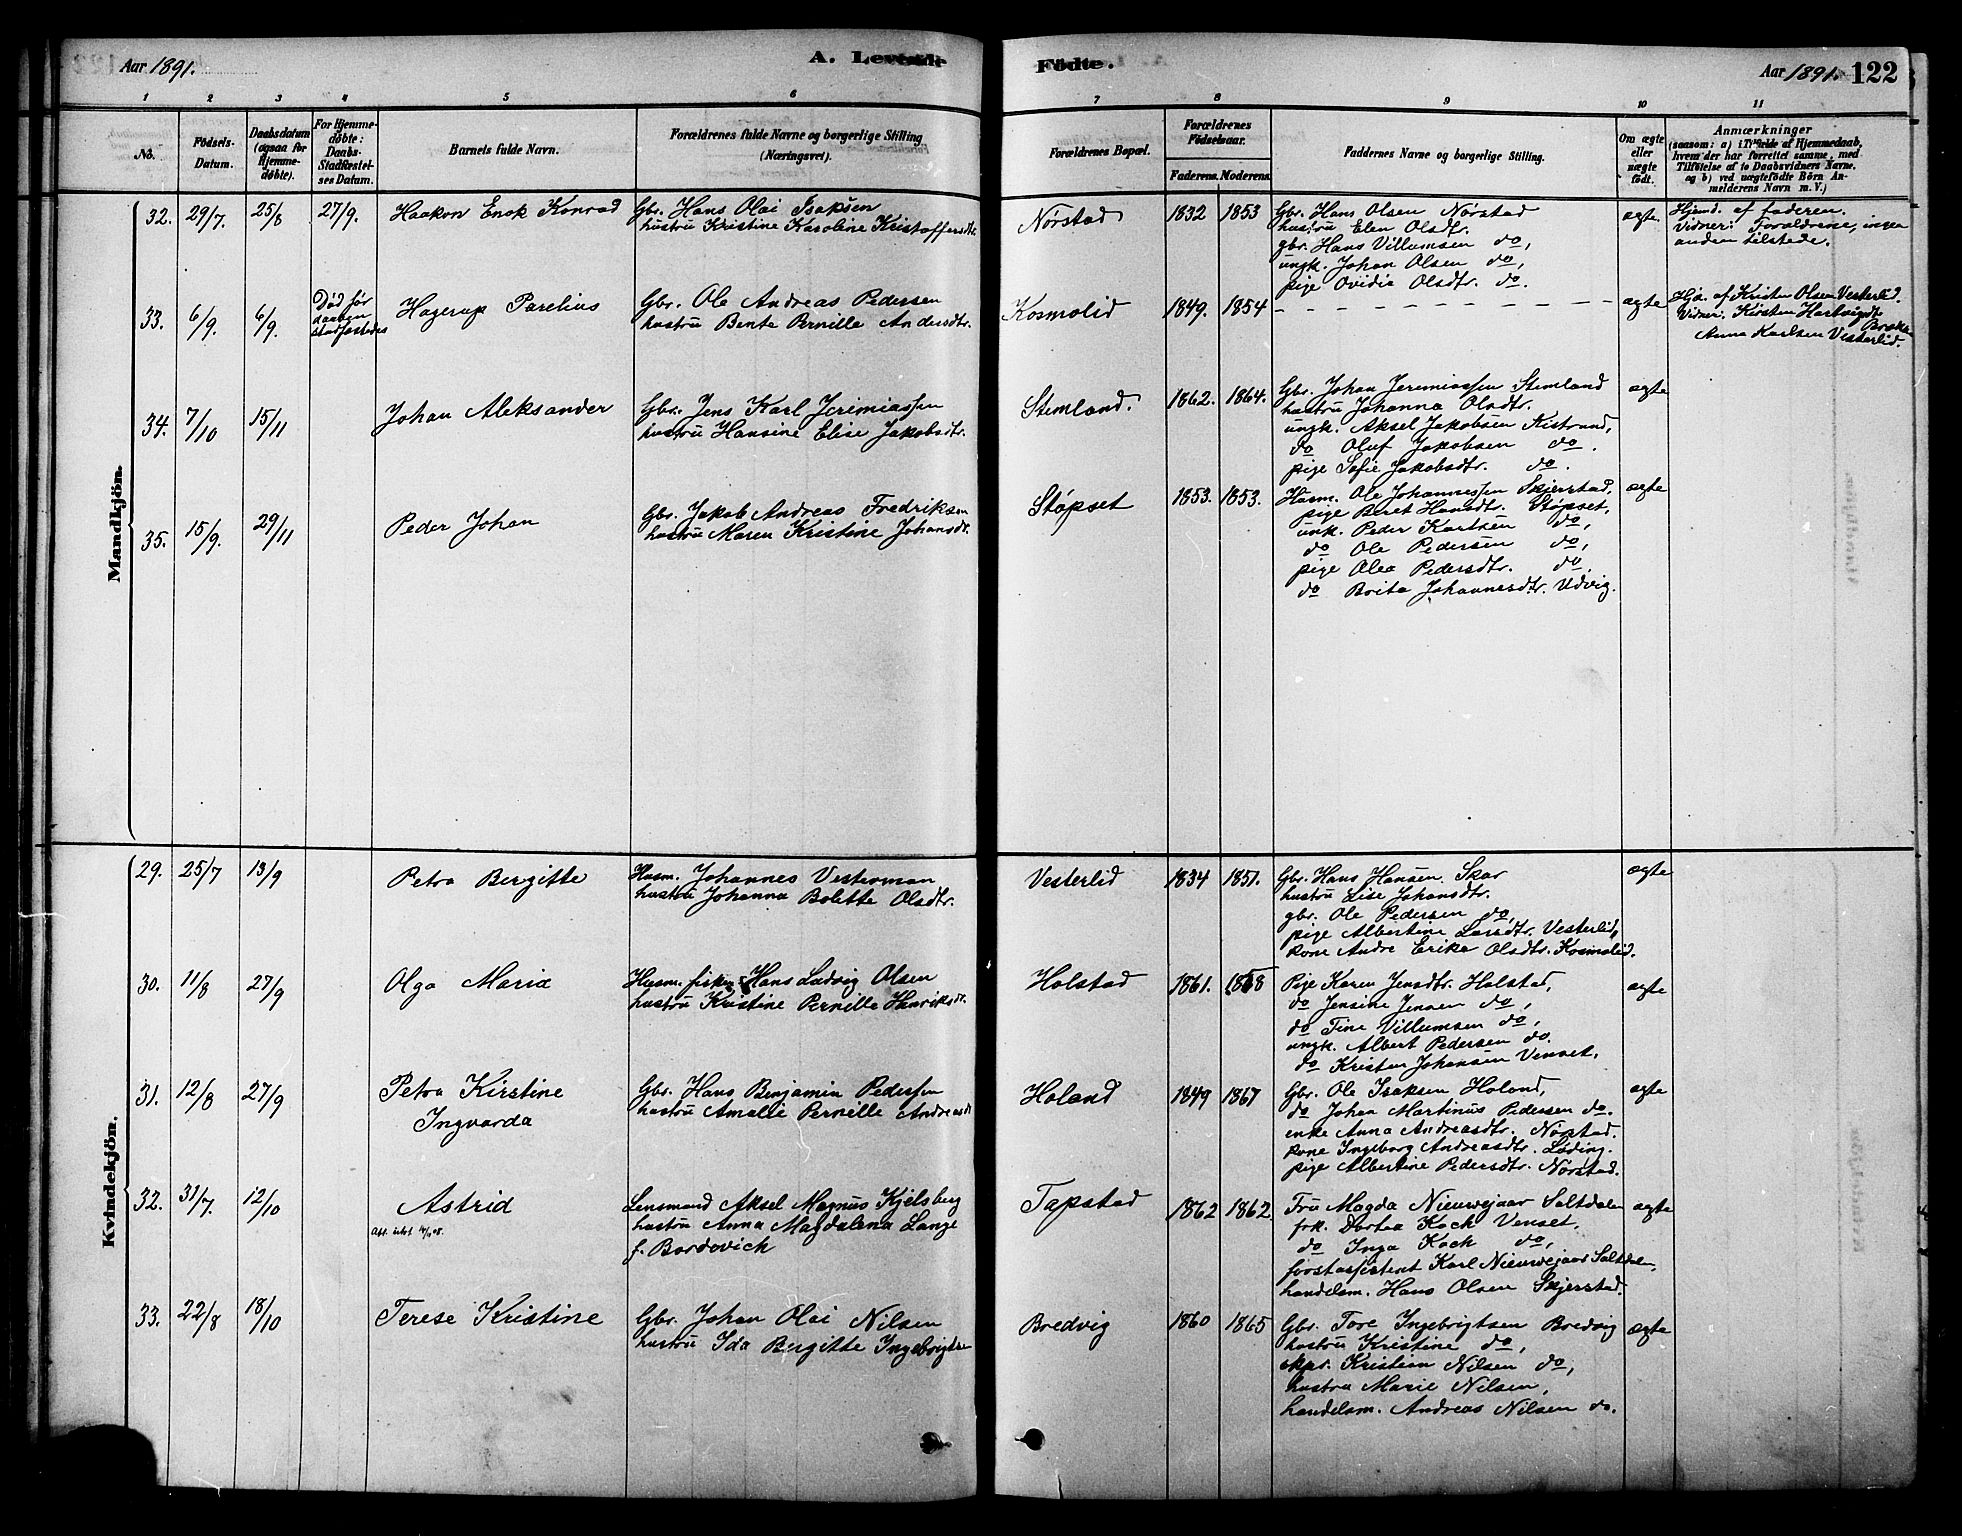 Aar 1891.
A. Levende
Födte.
Aar 1891. 122
1 2 3 4 5 6 7 8 9 10 11
No.
Födsels-
Datum.
Daabsdatum
(ogsaa for
Hjemme-
döbte).
For Hjemme-
döbte:
Daabs-
Stadfæstel-
ses Datum.
Barnets fulde Navn.
Forældrenes fulde Navne og borgerlige Stilling
(Næringsvei).
Forældrenes Bopæl.
Forældrenes
Födselsaar.
Faderens. Moderens.
Faddernes Navne og borgerlige Stilling.
Om ægte
eller
uægte
födt.
Anmærkninger
(saasom: a) i Tilfælde af Hjemmedaab,
hvem der har forrettet samme, med
Tilföielse af to Daabsvidners Navne.
og b) ved uægtefödte Börn An-
melderens Navn m. V.)
Mandkjön.
32. 29/7 25/8 27/9. Haakon Enok Konrad
Gbr. Hans Olai Isaksen
hustru Kristine Karoline Kristoffersdtr.
Nørstad 1832 1853
Gbr. Hans Olsen Nørstad
hustru Elen Olsdtr.
gbr. Hans Villumsen do,
ungk. Johan Olsen do,
pige Ovidia Olsdtr. do.
ægte
Hjemd. af faderen.
Vidner: Forældrene, ingen
anden tilstede.
33. 6/9. 6/9.
Død før
daaben
stadfæstedes
Hagerup Parelius
Gbr. Ole Andreas Pedersen
hustru Bente Pernille Andersdtr.
Kosmolid 1849. 1854
ægte
Hjd. af Kristen Olsen Vesterlid.
Vidner: Kirsten Hartvigdtr.
Anna Karlsen Vesterlid.
34. 7/10 15/11 Johan Aleksander
Gbr. Jens Karl Jeremiassen
hustru Hansine Elise Jakobsdtr.
Stemland. 1862. 1864.
Gbr. Johan Jeremiassen Stemland
hustru Johanna Olsdtr.
ungk. Aksel Jakobsen Kistrand,
do Oluf Jakobsen do.
pige Sofie Jakobsdtr. do.
ægte
35. 15/9. 29/11 Peder Johan
Gbr. Jakob Andreas Fredriksen
hustru Maren Kristine Johansdtr.
Støpset 1853. 1853.
Husm. Ole Johannessen Skjerstad,
pige Beret Hansdtr. Støpset,
unk. Peder Karlsen do,
do Ole Pedersen do,
pige Olea Pedersdtr. do.
do Brita Johannesdtr. Udvig.
ægte
Kvindekjön.
29. 25/7 13/9 Petra Bergitte
Husm. Johannes Vesterman
hustru Johanna Bolette Olsdtr.
Vesterlid 1834 1851.
Gbr. Hans Hansen Skar
hustru Lise Johansdtr.
gbr. Ole Pedersen do,
pige Albertine Larsdtr. Vesterlid,
kone Andre Erika Olsdtr. Kosmolid.
ægte
30. 11/8 27/9 Olga Maria
Husm. fisker Hans Ludvig Olsen
hustru Kristine Pernille Henriksdtr.
Holstad 1861. 1858
Pige Karen Jensdtr. Holstad,
do Jensine Jensen do,
do Tine Villumsen do,
ungk. Albert Pedersen do.
do Kristen Johansen Venset.
ægte
31. 12/8 27/9
Petra Kirstine
Ingvarda
Gbr. Hans Benjamin Pedersen
hustru Amalie Pernille Andreasdt
Holand 1849 1867
Gbr. Ole Isaksen Holand,
do Johan Martinus Pedersen do.
enke Anna Andreasdtr. Nørstad.
kone Ingeborg Andreasdtr. Løding.
pige Albertine Pedersdtr. Nørstad.
ægte
32. 31/7. 12/10 Astrid
Lensmand Aksel Magnus Kjelsberg
hustru Anna Magdalena Lange
f. Bordevich
Tapstad 1862 1862.
Fru Magda Nieuwejaar Saltdalen
frk. Dortea Kock Venset,
do Inga Kock do,
forstassistent Karl Nieuwejaar Saltdalen,
handelsm. Hans Olsen Skjerstad.
ægte
33. 22/8 18/10 Terese Kristine
Gbr. Johan Olai Nilsen
hustru Ida Bergitte Ingebrigtsen
Bredvig 1860 1865
Gbr. Tore Ingebrigtsen Bredvig
hustru Kristine do,
skpr. Kristian Nilsen do,
hustru Marie Nilsen,
handelsm. Andreas Nilsen do.
ægte